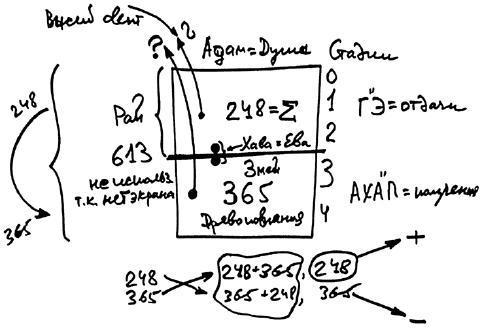 Высший свет
?
?
Адам=Душа
Стадии
0
1
2
3
4
Г"Э=отдача
АХА"П=получение
Рай
248=Σ
Хава=Ева
613
не использ
т.к. нет экрана
Змей
365
Древо познания
248
365
248
365
248+365,
365+248,
248
365
+
−